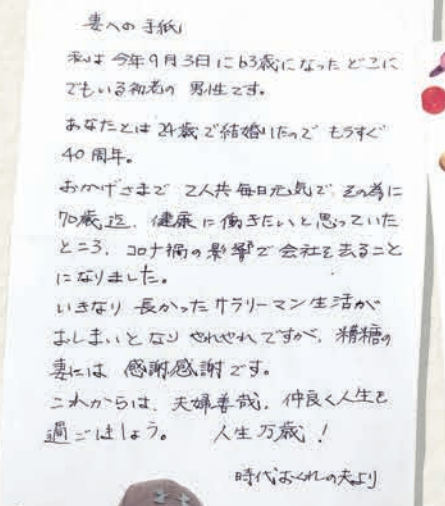 妻への手紙
私は今年9月3日に63歳になったどこに
でもいる初老の男性です。
あなたとは24歳で結婚したのでもうすぐ
40周年。
おかげさまで2人共毎日元気で その為に
70歳迄、健康に働きたいと思っていた
ところ、コロナ禍の影響で会社を去ること
になりました。
いきなり長かったサラリーマン生活が
おしまいとなりやれやれですが、糟糠の
妻には感謝感謝です。
これからは、夫婦善哉、仲良く人生を
過ごしましょう。 人生万歳！
時代おくれの夫より